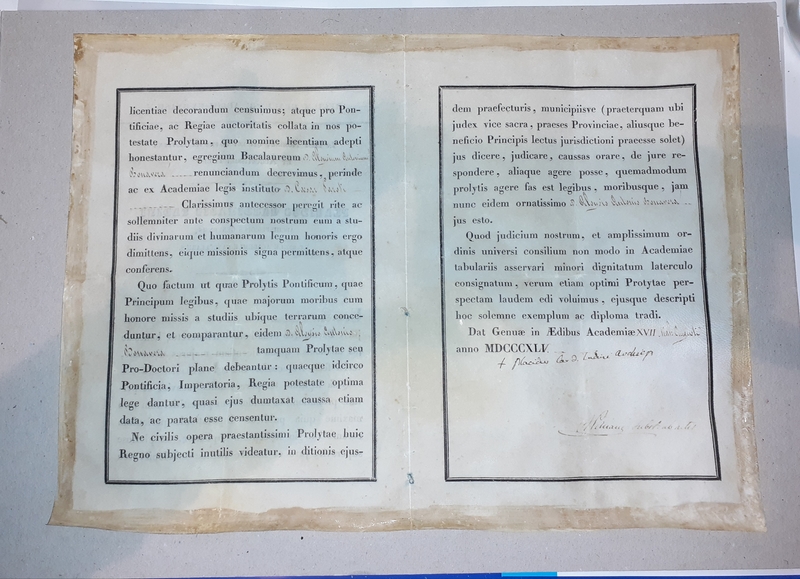 licentiae decorandum censuimus; atque pro Pon-
tificiae, ac Regiae auctoritatis collata in nos po-
testate Prolytam, quo nomine licentiam adepti
honestantur, egregium Bacalaureum D. Aloysium Antonium
Bonavera renunciandum decrevimus, perinde
ac ex Academiae legis instituto D. Caesar
Clarissimus antecessor peregit rite ac
sollemniter ante conspectum nostrum eum a stu-
diis divinarum et humanarum legum honoris ergo
dimittens, eique missionis signa permittens, atque
conferens.
Quo factum ut quae Prolytis Pontificum, quae
Principum legibus, quae majorum moribus cum
honore missis a studiis ubique terrarum conce-
duntur, et comparantur, eidem D. Aloysio Antonio
Bonavera tamquam Prolytae seu
Pro-Doctori plane debeantur: quaeque idcirco
Pontificia, Imperatoria, Regia potestate optima
lege dantur, quasi ejus dumtaxat caussa etiam
data, ac parata esse censentur.
Ne civilis opera praestantissimi Prolytae huic
Regno subjecti inutilis videatur, in ditionis ejus-
dem praefecturis, municipiisve (praeterquam ubi
judex vice sacra, praeses Provinciae, aliusque be-
neficio Principis lectus jurisdictioni praeesse solet)
jus dicere, judicare, caussas orare, de jure re-
spondere, aliaque agere posse, quemadmodum
prolytis agere fas est legibus, moribusque, jam
nunc eidem ornatissimo D. Aloysio Antonio Bonavera
jus esto.
Quod judicium nostrum, et amplissimum or-
dinis universi consilium non modo in Academiae
tabulariis asservari minori dignitatum laterculo
consignatum, verum etiam optimi Protytae per-
spectam laudem edi voluimus, ejusque descripti
hoc solemne exemplum ac diploma tradi.
Dat Genuae in Ædibus Academiæ XVII
anno MDCCCXLV.
† Placidus Card.